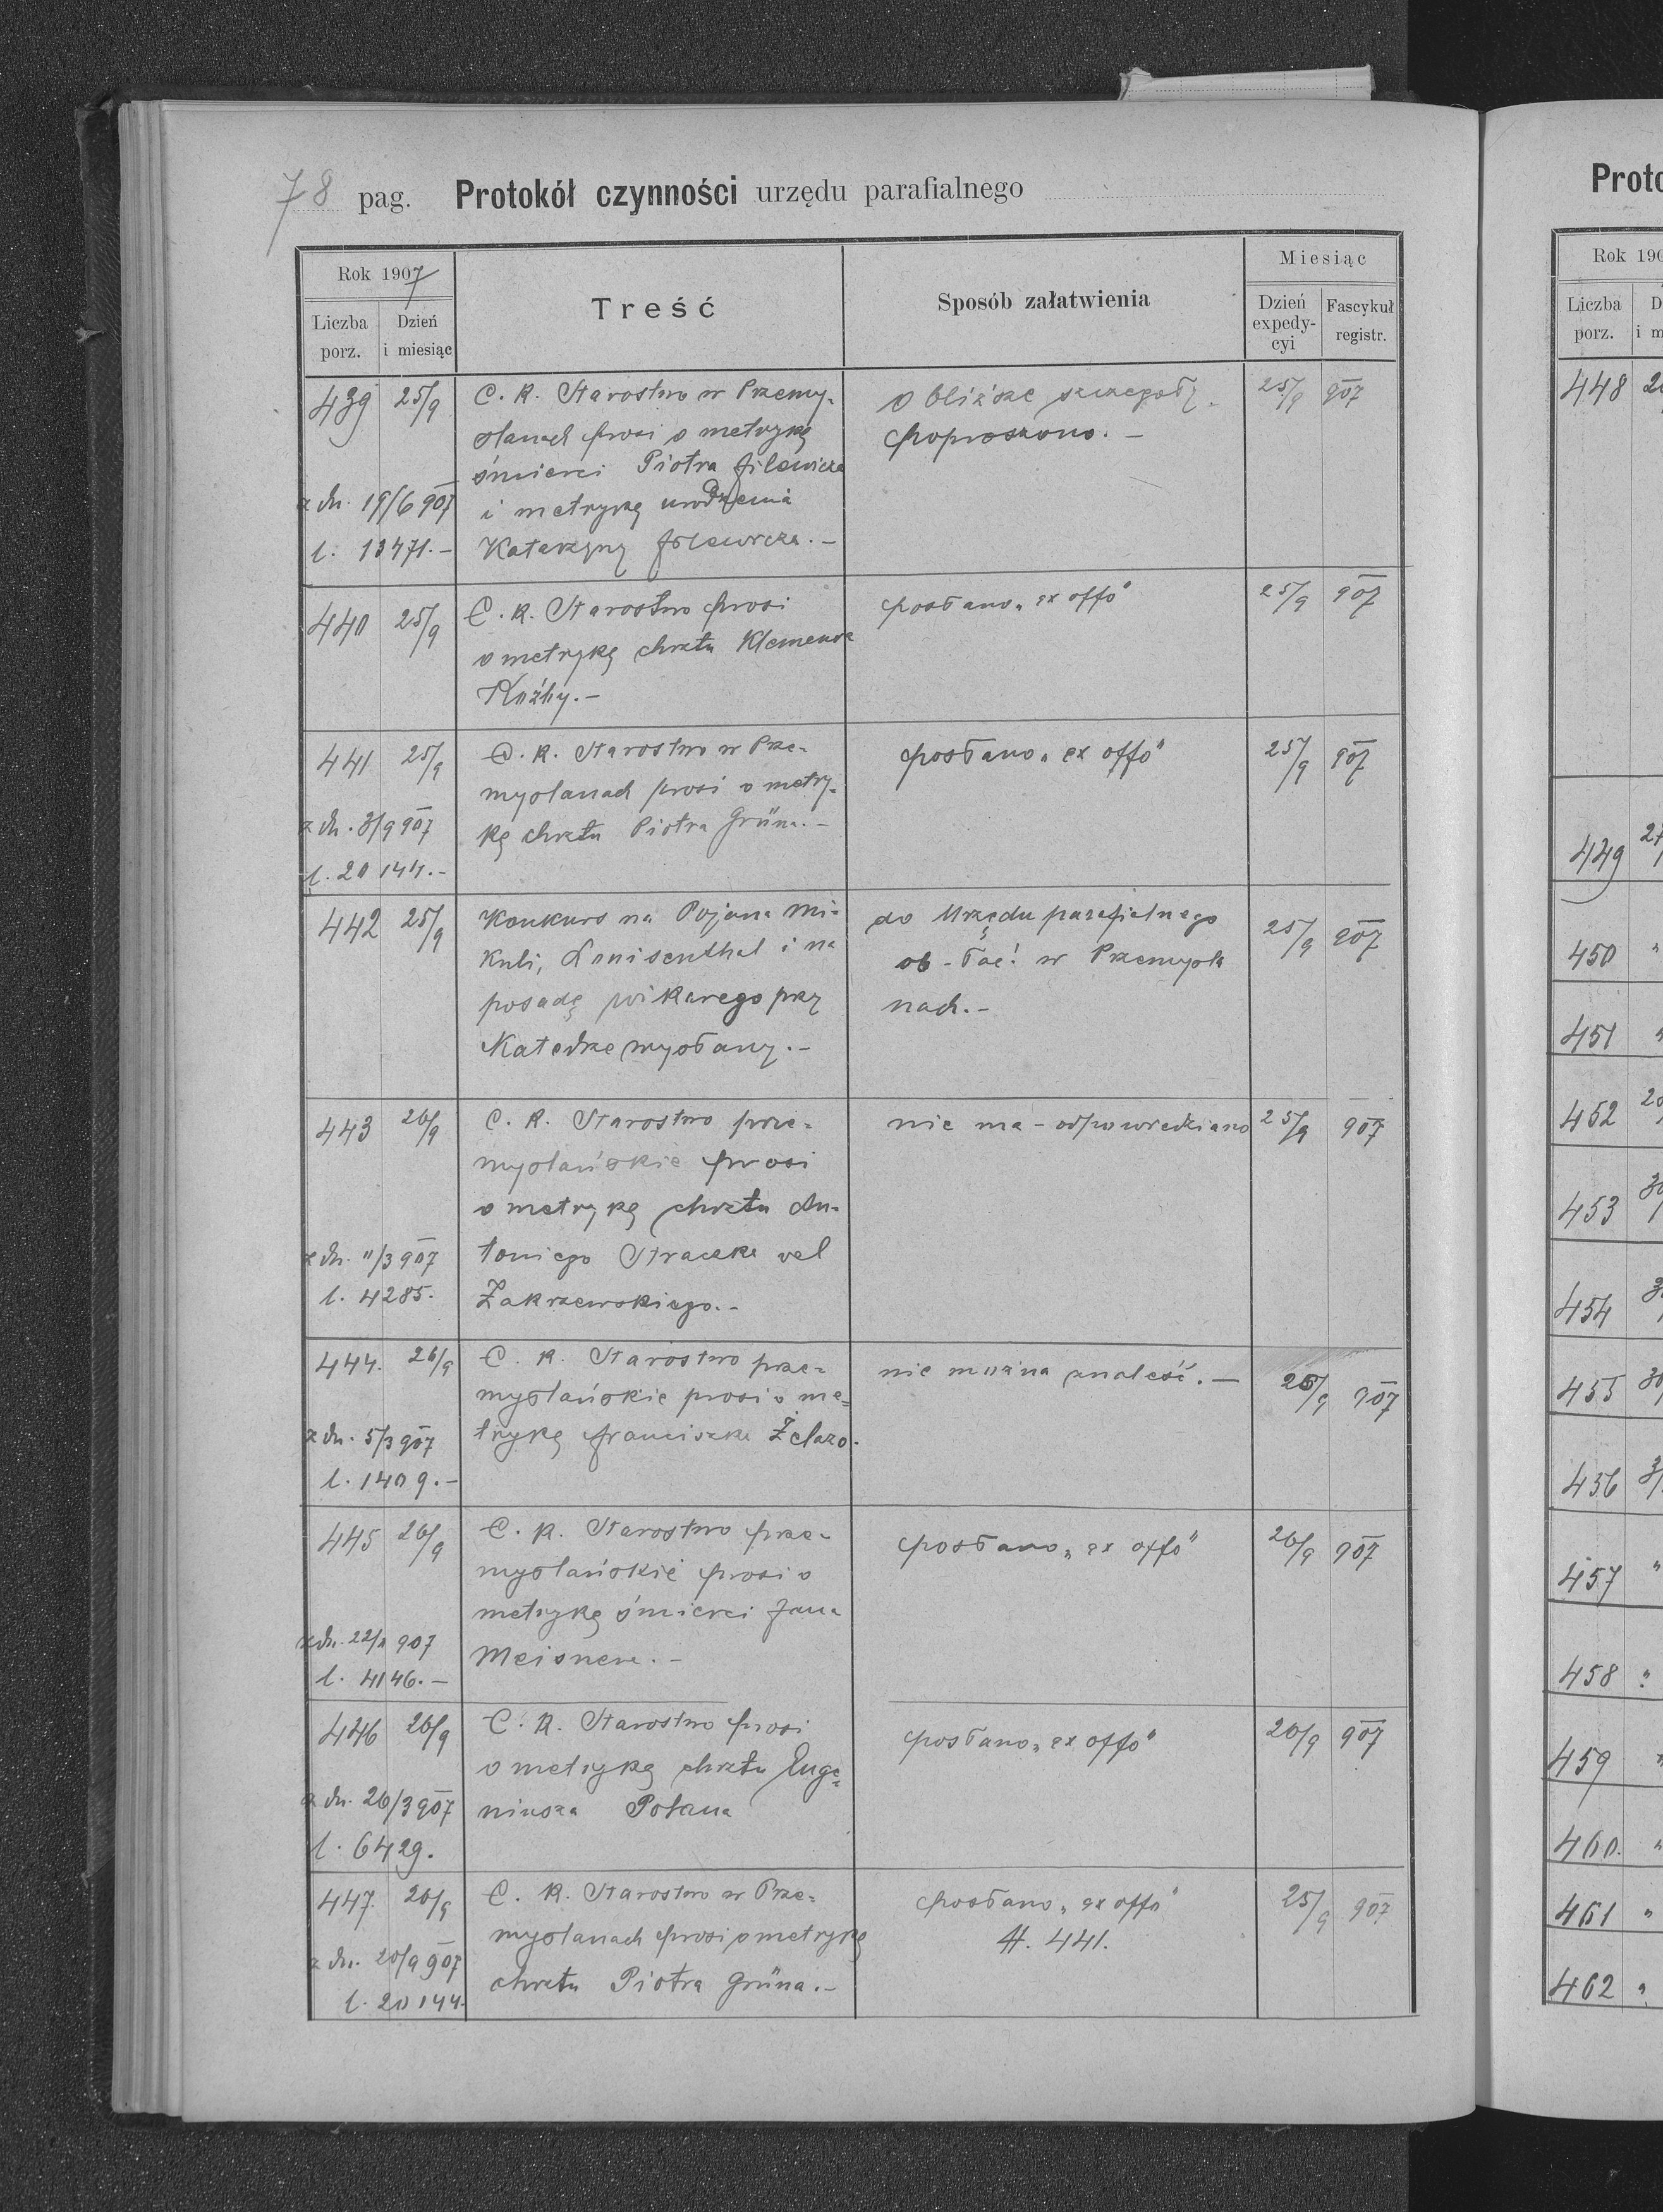 78 pag. Protokół czynności urzędu parafialnego
Rok 1907
Liczba porz.
Dzień i miesiąc
Treść
Sposób załatwienia
Miesiąc
Dzień expedy-cyi
Fascykuł registr.
439 25/9 C. K. Starostwo w Przemy- o bliższe szczegóły 25/9 907
ślanach prosi o metrykę poproszono. –
śmierci Piotra Filewicza
z dn. 19/6 907 i metrykę urodzenia
l. 13471.– Katarzyny Filewicza. –
440 25/9 C. K. Starostwo prosi posłano „ex offo" 25/9 907
o metrykę chrztu Klemensa
Koźby. –
441 25/9 C. K. Starostwo w Prze- posłano „ex offo" 25/9 907
myślanach prosi o metry-
z dn. 3/9 907 kę chrztu Piotra Grüna. –
l. 20144.–
442 25/9 Konkurs na Pojana Mi- do Urzędu parafialnego 25/9 907
kuli, Louisenthal i na ob. łac! w Przemyśla
posadę wikarego przy nach. –
Katedrze wysłany. –
443 26/9 C. K. Starostwo prze- nie ma – odpowiedziano 25/9 907
myślańskie prosi
o metrykę chrztu An-
z dn. 11/3 907 toniego Straczka vel
l. 4285. Zakrzewskiego. –
444. 26/9 C. K. Starostwo prze- nie można znaleść. – 26/9 907
myślańskie prosi o me-
z dn. 5/3 907 trykę Franciszka Żelazo.
l. 1409.–
445 26/9 C. K. Starostwo prze- posłano „ex offo" 26/9 907
myślańskie prosi o
metrykę śmierci Jana
z dn. 907 Meisnera. –
l. 4146.–
446 26/9 C. K. Starostwo prosi posłano „ex offo" 26/9 907
o metrykę chrztu Euge-
z dn. 26/3 907 niusza Polana
l. 6429.
447. 26/9 C. K. Starostwo w Prze- posłano „ex offo" 25/9 907
myślanach prosi o metrykę 441.
z dn. 20/9 907 chrztu Piotra Grüna. –
l. 20144.
Proto
Rok 190
Liczba porz.
D
i m
448
449
450 "
451
452
453
454
455
456
457 "
458 "
459
460. "
461 "
462 "